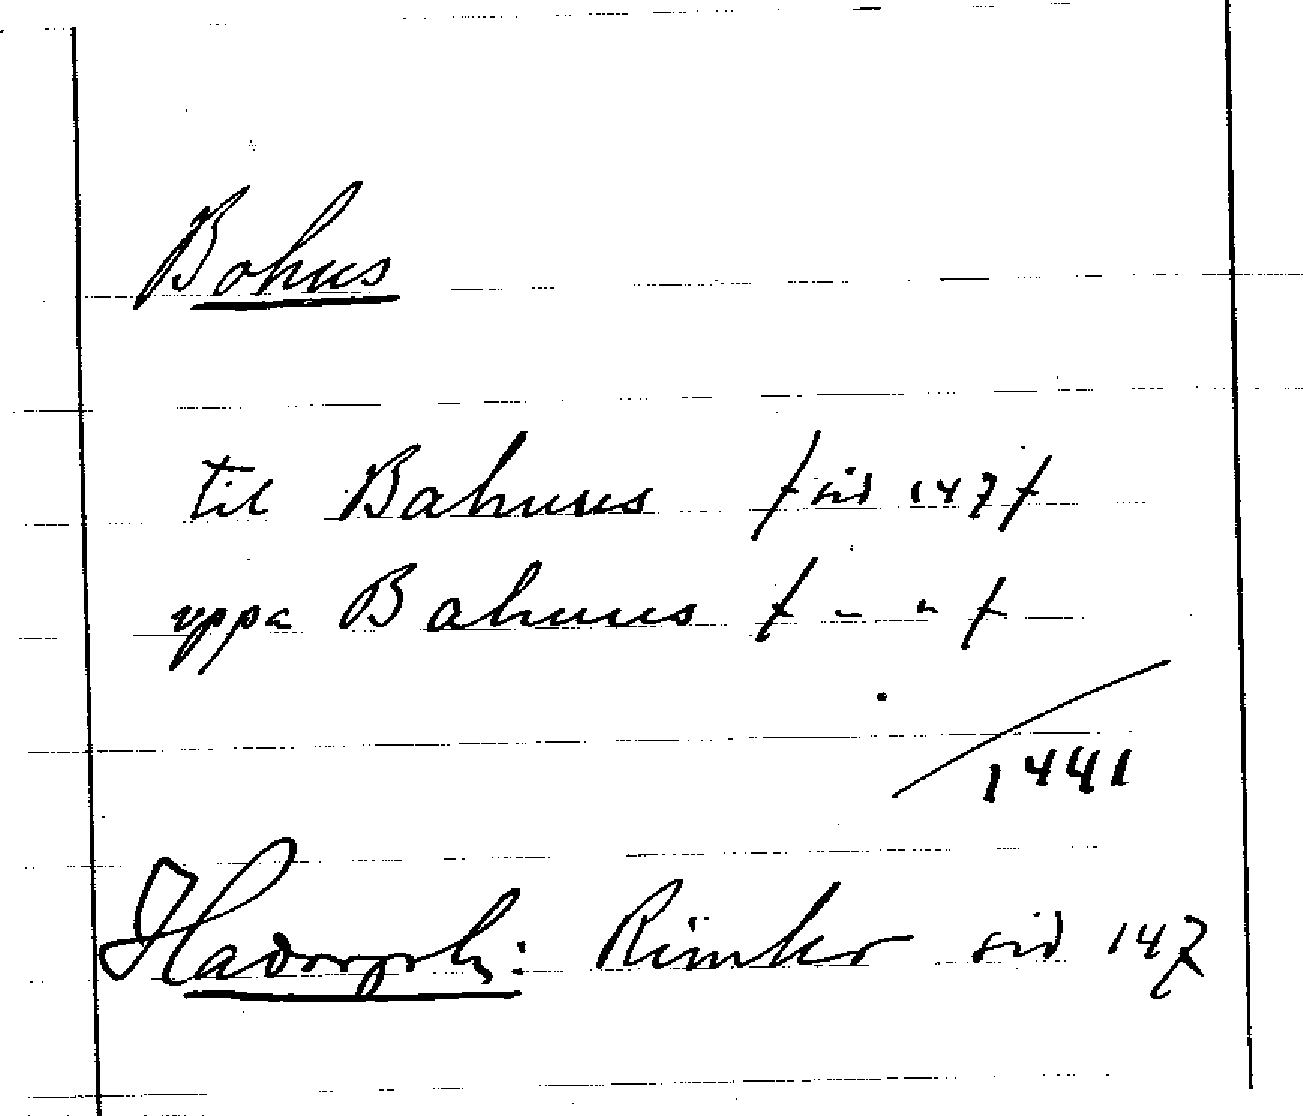 Bohus
til Bahuus /sid 147/
uppa Bahuus / - " /
1441
Hadorph: Rimkr sid 147